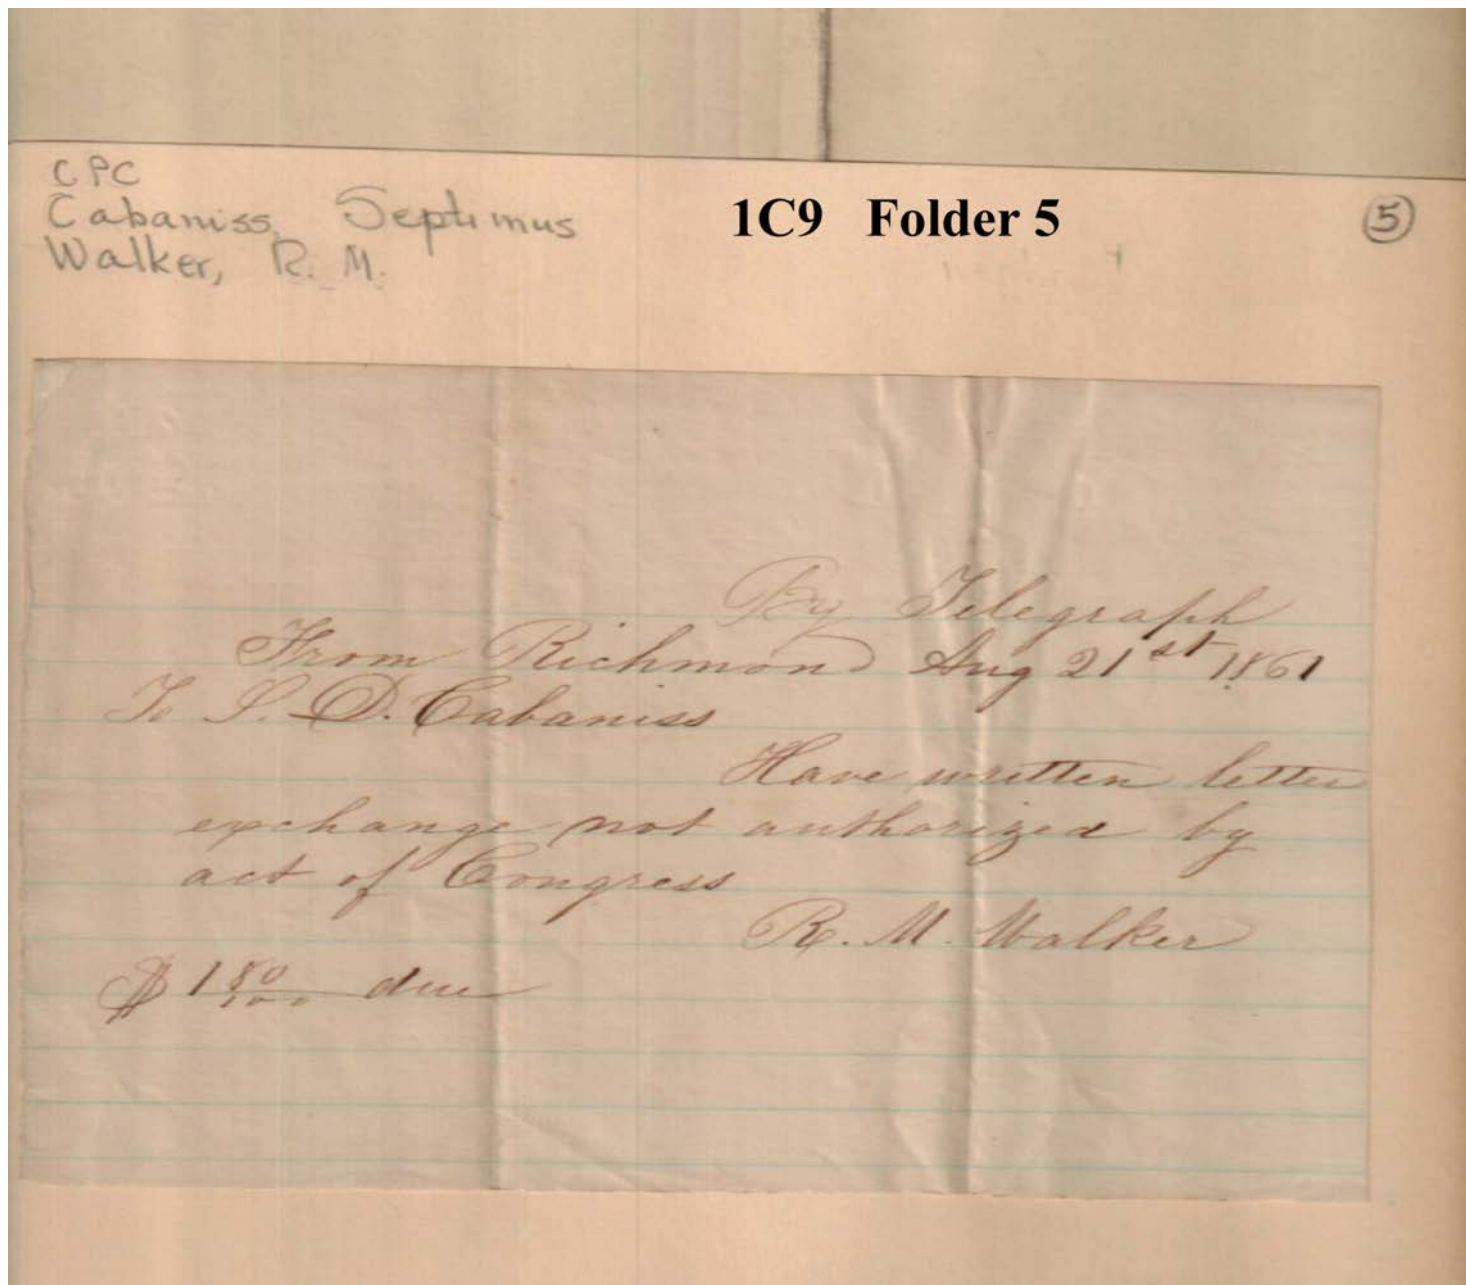 CPC
Cabaniss, Septimus
Walker, R. M.
1C9 Folder 5
5
By Telegraph
From Richmond Aug 21st 1861
To S. D. Cabaniss
Have written letter
exchange not authorized by
act of Congress
R. M. Walker
$1 80/100 due